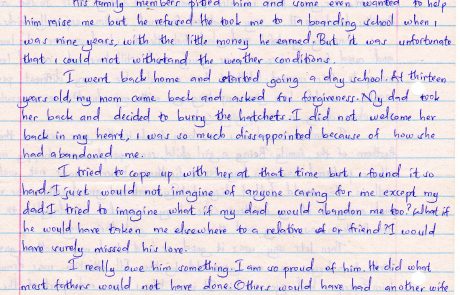 His family members pitied him and some even wanted to help
him raise me but he refused. He took me to a boarding school when i
was nine years, with the little money he earned. But it was unfortunate
that i could not withstand the weather conditions.
I went back home and started going a day school. At thirteen
years old, my mom came back and asked for forgiveness. My dad took
her back and decided to burry the hatchets. I did not welcome her
back in my heart, i was so much dissappointed because of how she
had abandoned me.
I tried to cope up with her at that time but i found it so
hard. I just would not imagine of anyone caring for me except my
dad. I tried to imagine what if my dad would abandon me too? What if
he would have taken me elsewhere to a relative or friend? I would
have surely missed his love.
I really owe him something. I am so proud of him. He did what
most fathers would not have done. Others would have had another wife